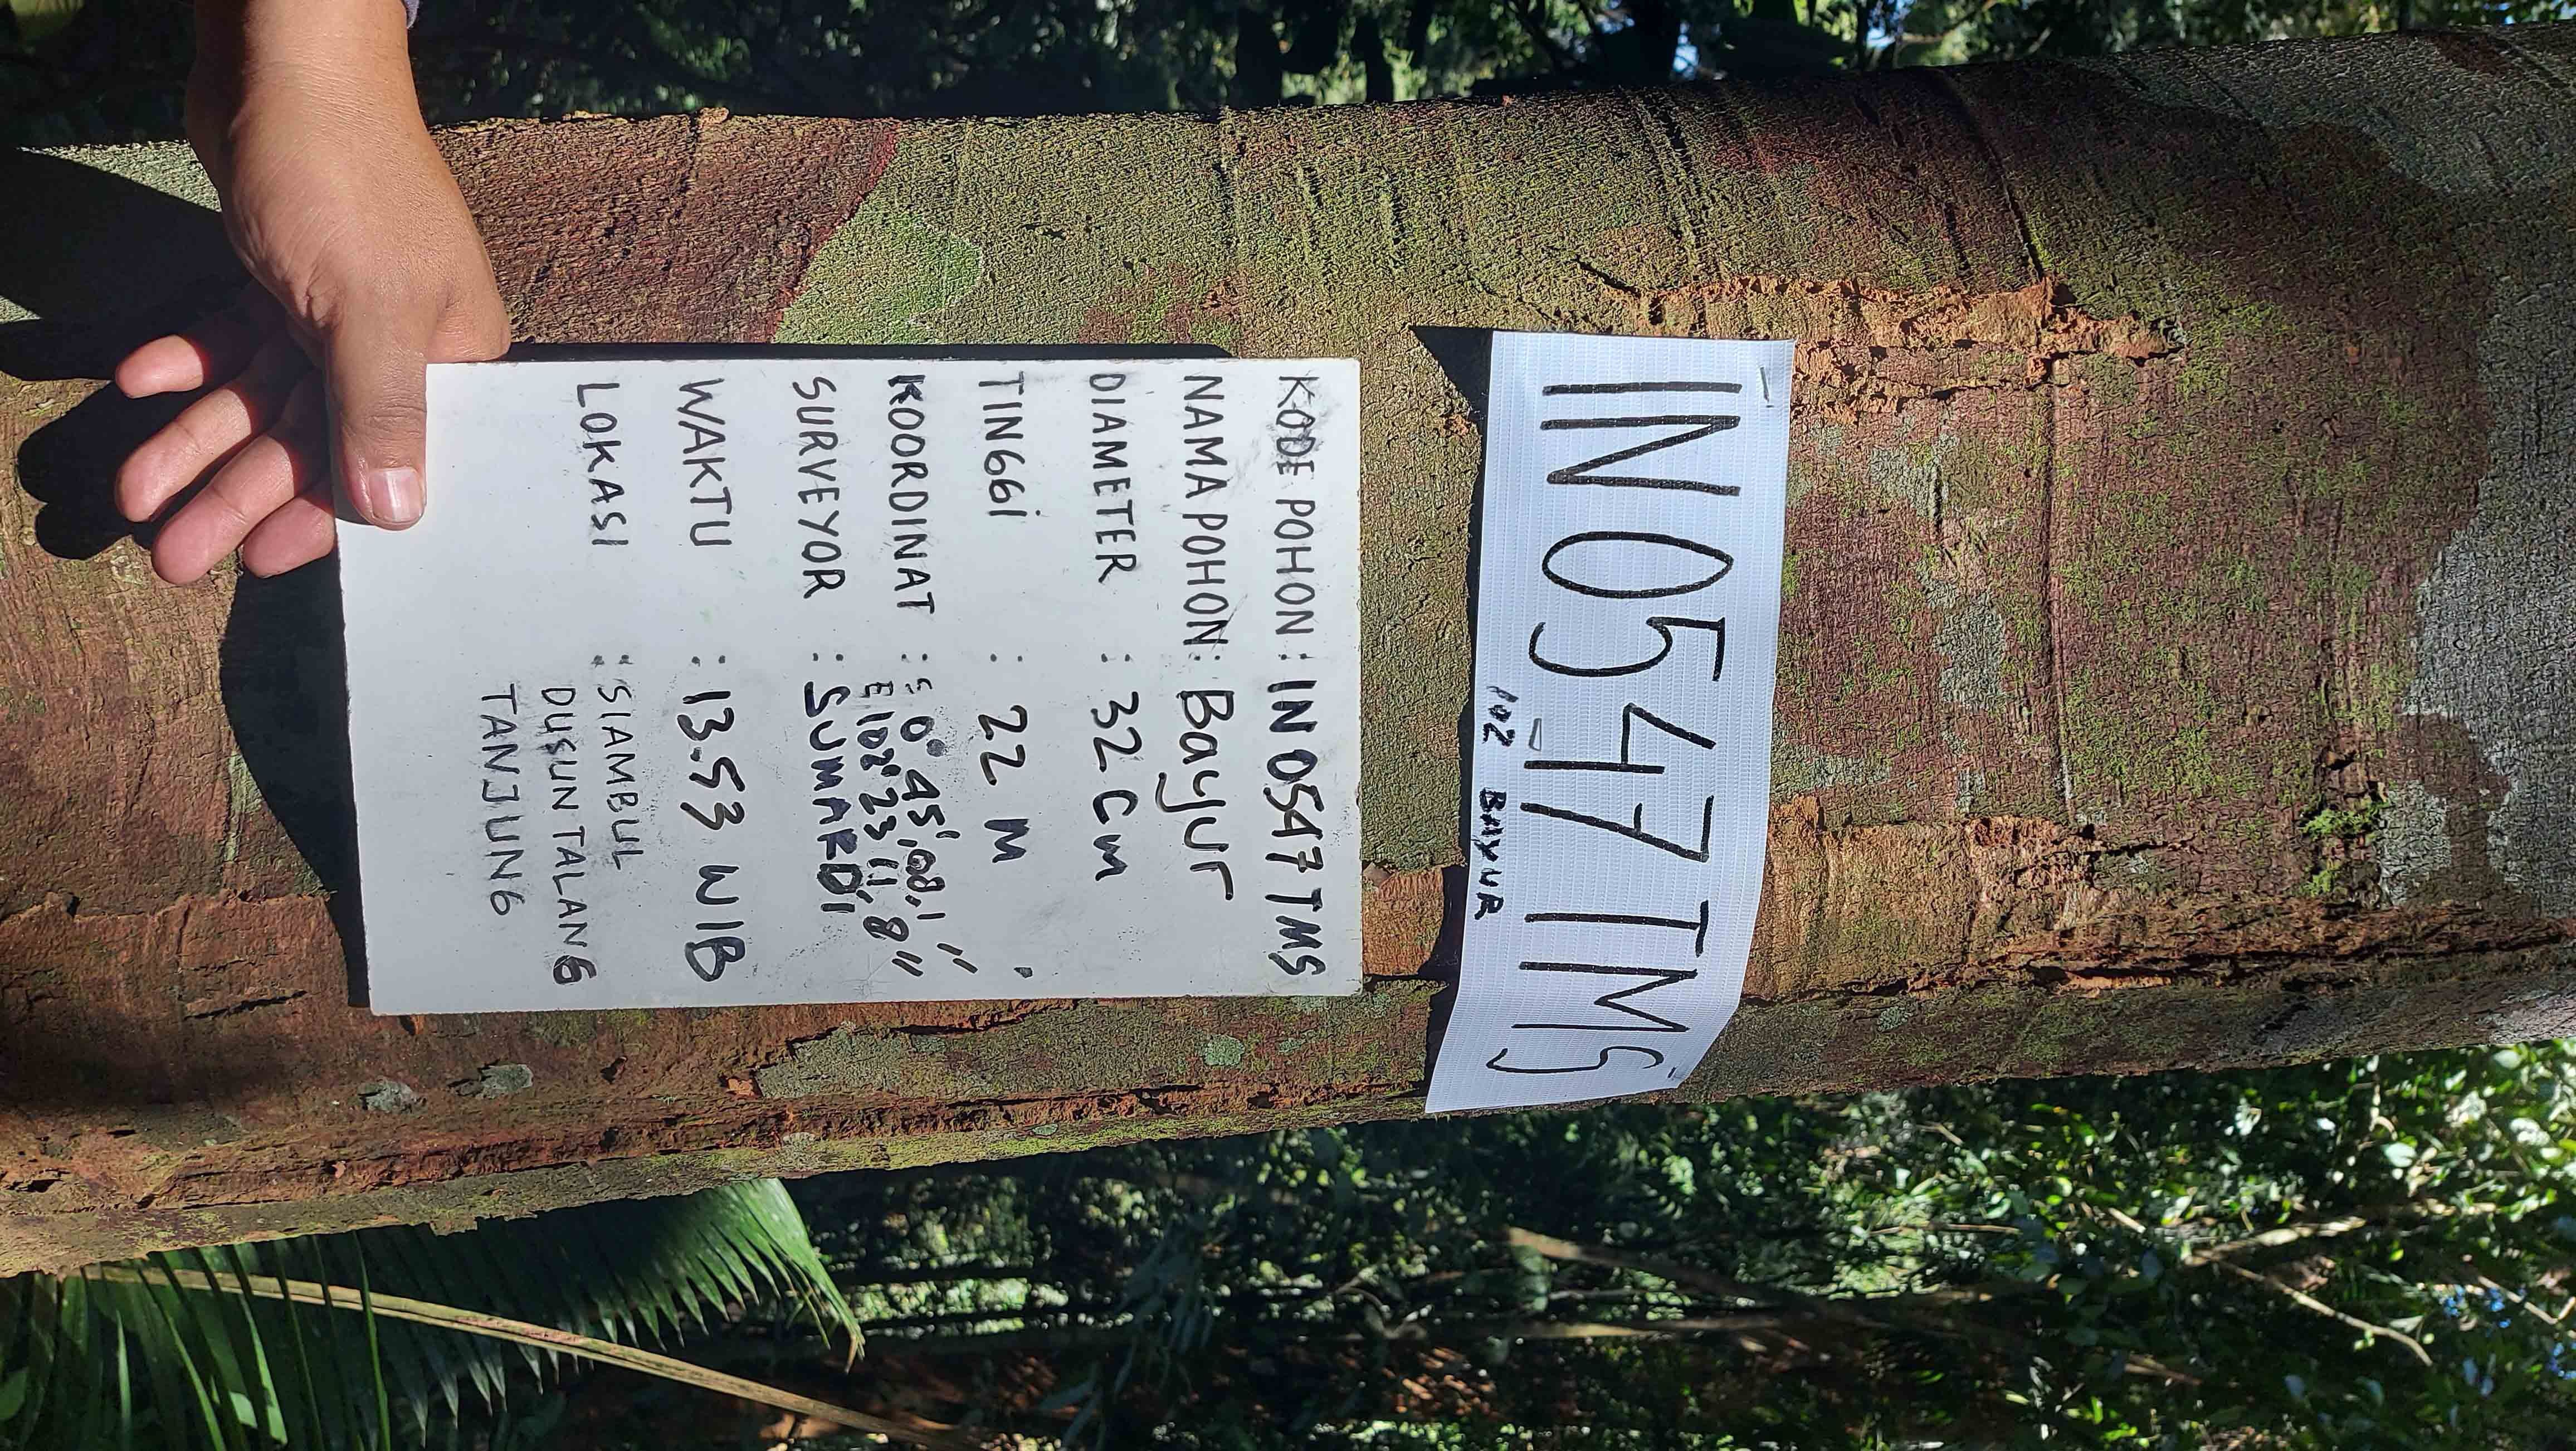 IN 0547 TMS
102 BAYUR
KODE POHON : IN 0547 TMS
NAMA POHON : Bayur
DIAMETER : 32 Cm
TINGGI : 22 M
KOORDINAT : S 0° 45',08.1"
E 102° 23 11,8"
SURVEYOR : SUMARDI
WAKTU : 13.53 WIB
LOKASI : SIAMBUL
DUSUN TALANG
TANJUNG